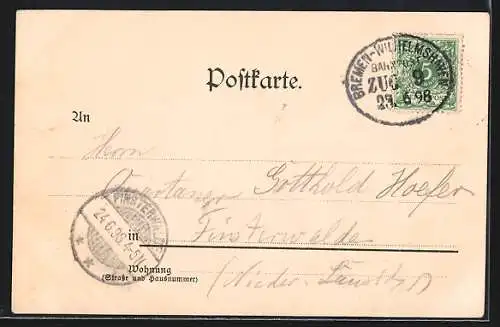 BREMEN-WILHELMSHAVEN
BAHNPOST
ZUG 9
23. 6 98
5
Postkarte.
An
Herrn
Quartaner Gotthold Hoefer
FINSTERWALDE
24.6.98. 4-5N.
in Finsterwalde
Wohnung
(Straße und Hausnummer)
(Nieder-Lausitz)